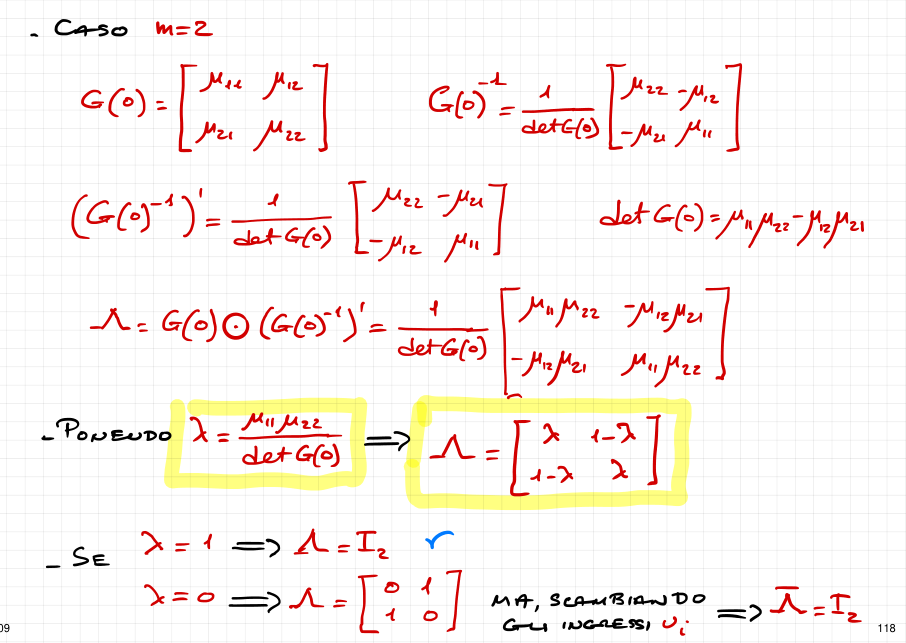 - CASO m=2
G(0) = [μ₁₁ μ₁₂; μ₂₁ μ₂₂] G(0)⁻¹ = 1/det G(0) [μ₂₂ -μ₁₂; -μ₂₁ μ₁₁]
(G(0)⁻¹)' = 1/det G(0) [μ₂₂ -μ₂₁; -μ₁₂ μ₁₁] det G(0) = μ₁₁μ₂₂ - μ₁₂μ₂₁
Λ = G(0) ⊙ (G(0)⁻¹)' = 1/det G(0) [μ₁₁μ₂₂ -μ₁₂μ₂₁; -μ₁₂μ₂₁ μ₁₁μ₂₂]
- PONENDO λ = μ₁₁μ₂₂/det G(0) ⟹ Λ = [λ 1-λ; 1-λ λ]
- SE λ = 1 ⟹ Λ = I₂
λ = 0 ⟹ Λ = [0 1; 1 0] MA, SCAMBIANDO
GLI INGRESSI υᵢ ⟹ Λ̄ = I₂
09 118